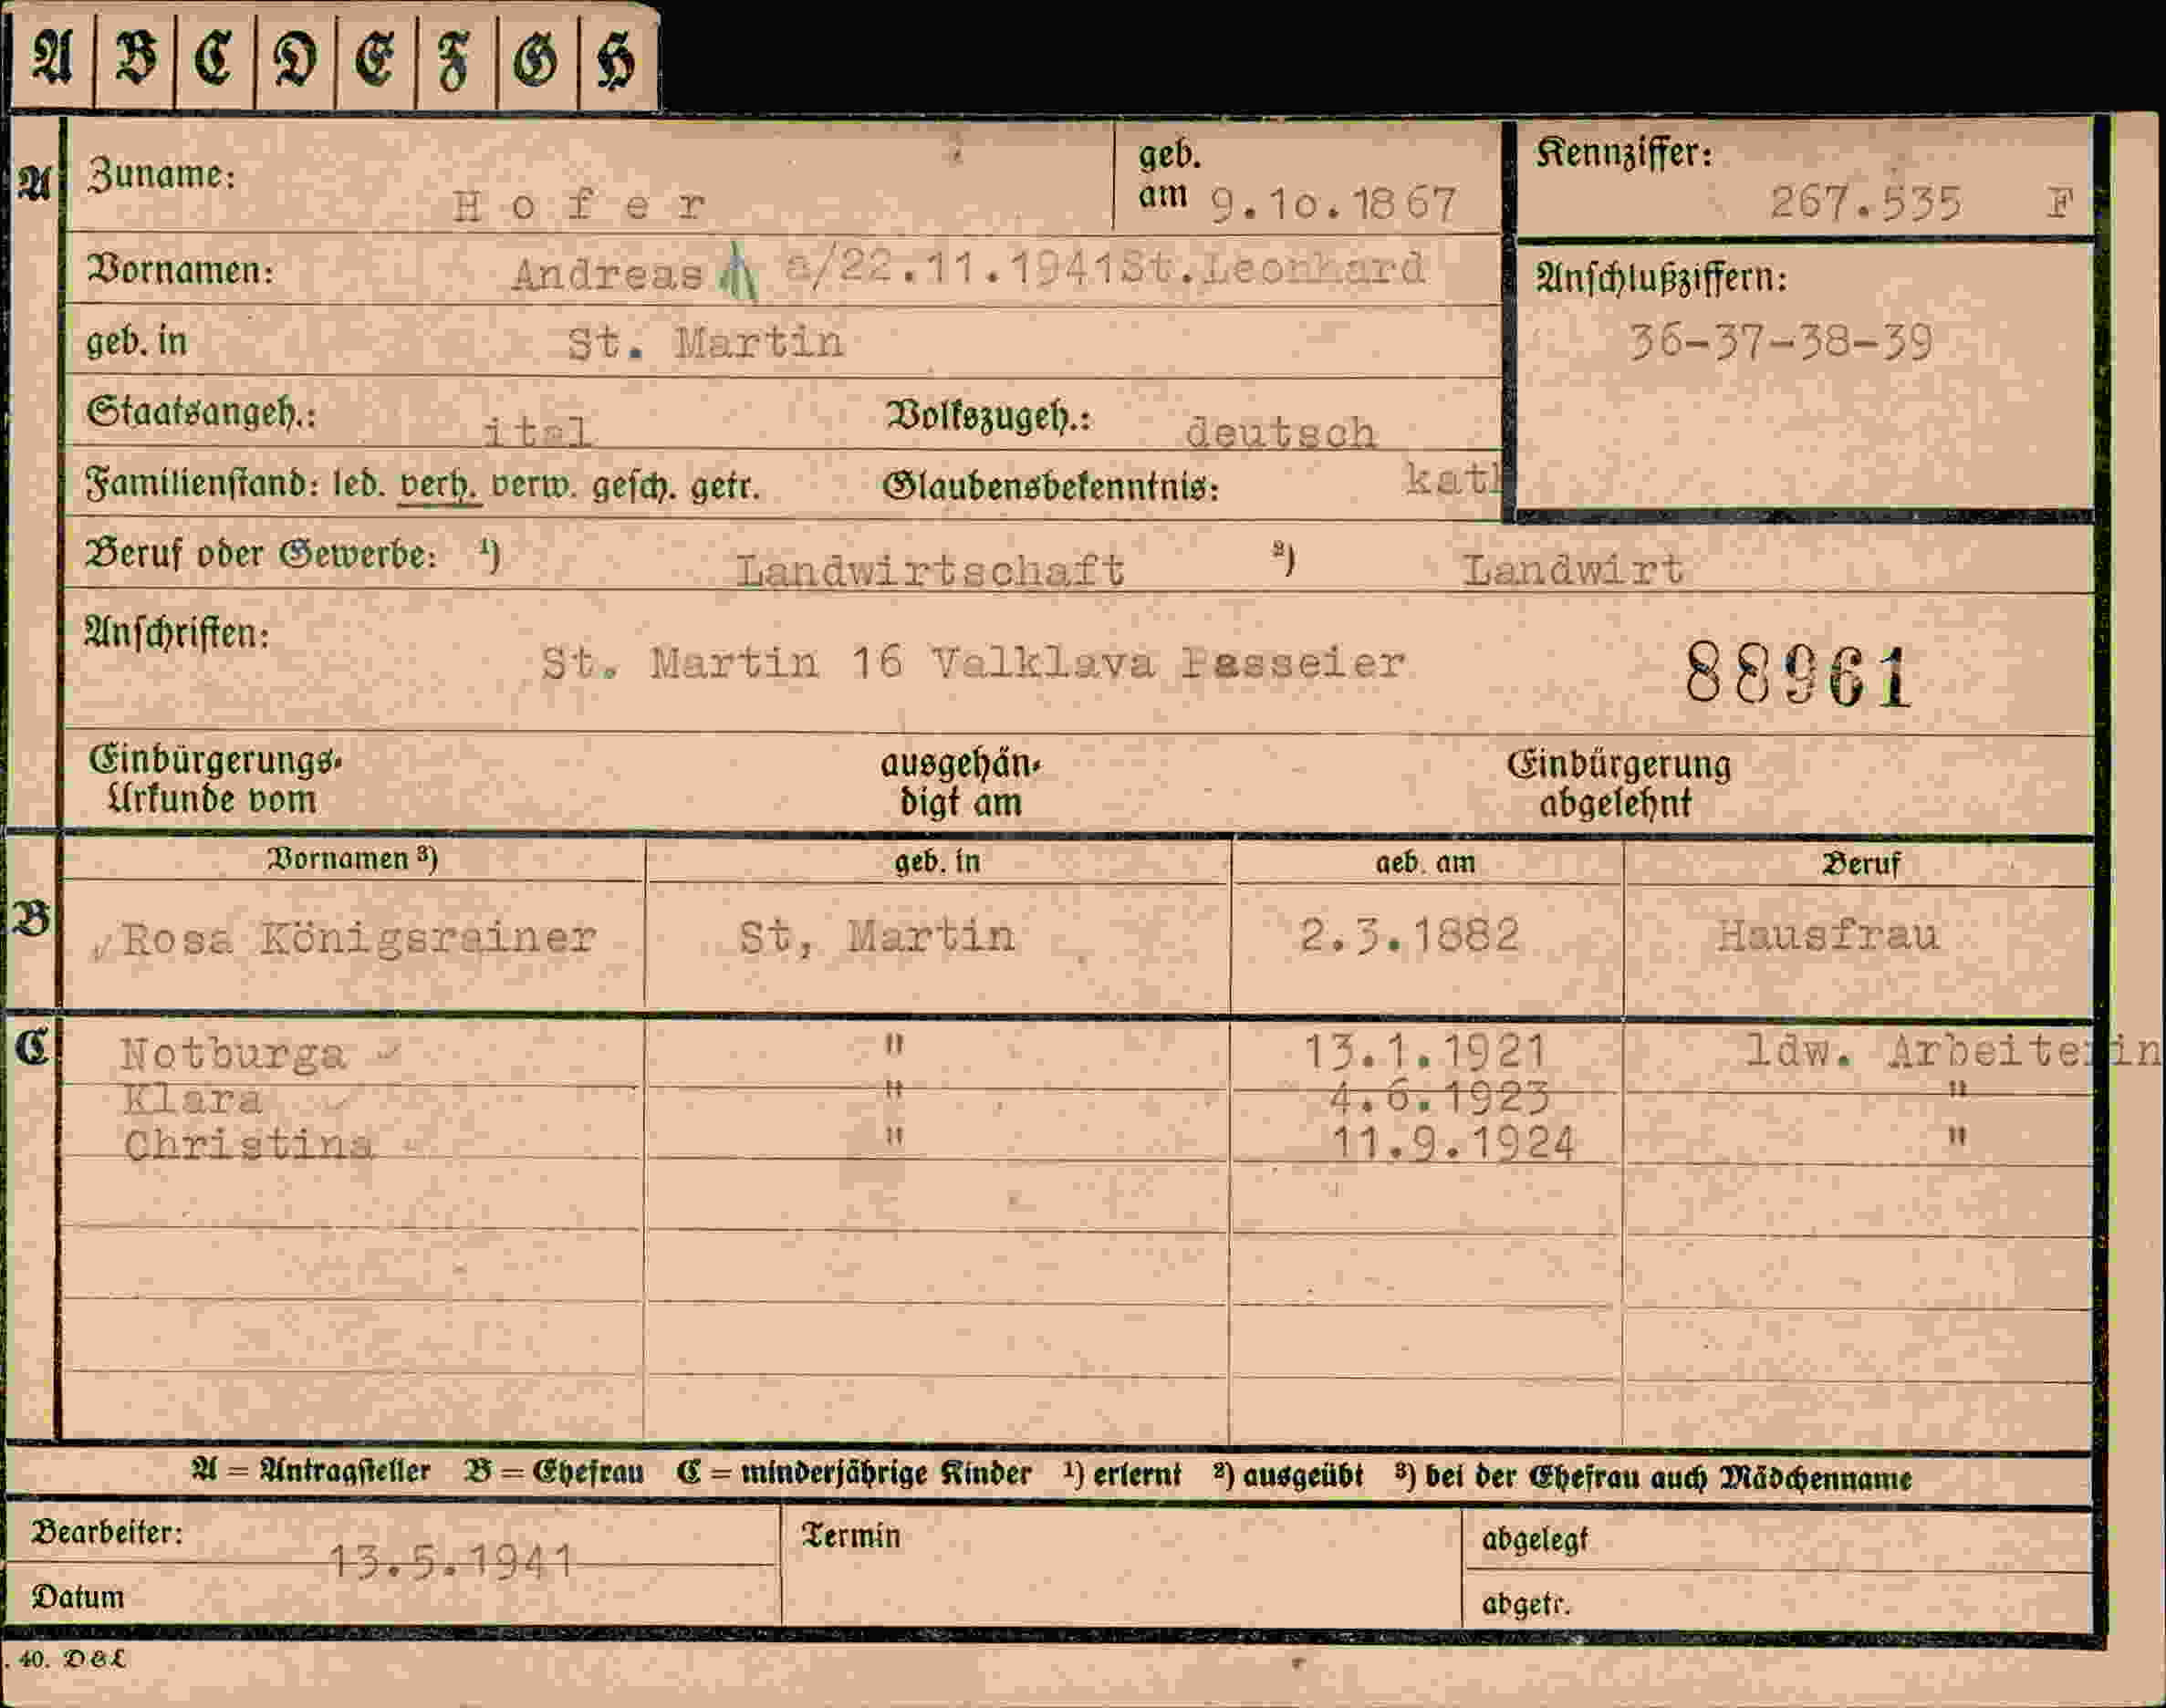 A B C D E F G H
A Zuname: Hofer geb. am 9.10.1867 Kennziffer: 267.535 F
Vornamen: Andreas a/22.11.1941St.Leonhard Anschlußziffern:
geb. in St. Martin 36-37-38-39
Staatsangeh.: ital Volkszugeh.: deutsch
Familienstand: led. verh. verw. gesch. getr. Glaubensbekenntnis: kath
Beruf oder Gewerbe: ¹) Landwirtschaft ²) Landwirt
Anschriften: St. Martin 16 Valklava Passeier 88961
Einbürgerungs- ausgehän- Einbürgerung
Urkunde vom digt am abgelehnt
Vornamen ³) geb. in geb. am Beruf
B Rosa Königsrainer St, Martin 2.3.1882 Hausfrau
C Notburga " 13.1.1921 ldw. Arbeiterin
Klara " 4.6.1923 "
Christina " 11.9.1924 "
A = Antragsteller B = Ehefrau C = minderjährige Kinder ¹) erlernt ²) ausgeübt ³) bei der Ehefrau auch Mädchenname
Bearbeiter: Termin abgelegt
13.5.1941
Datum abgetr.
. 40. D&L